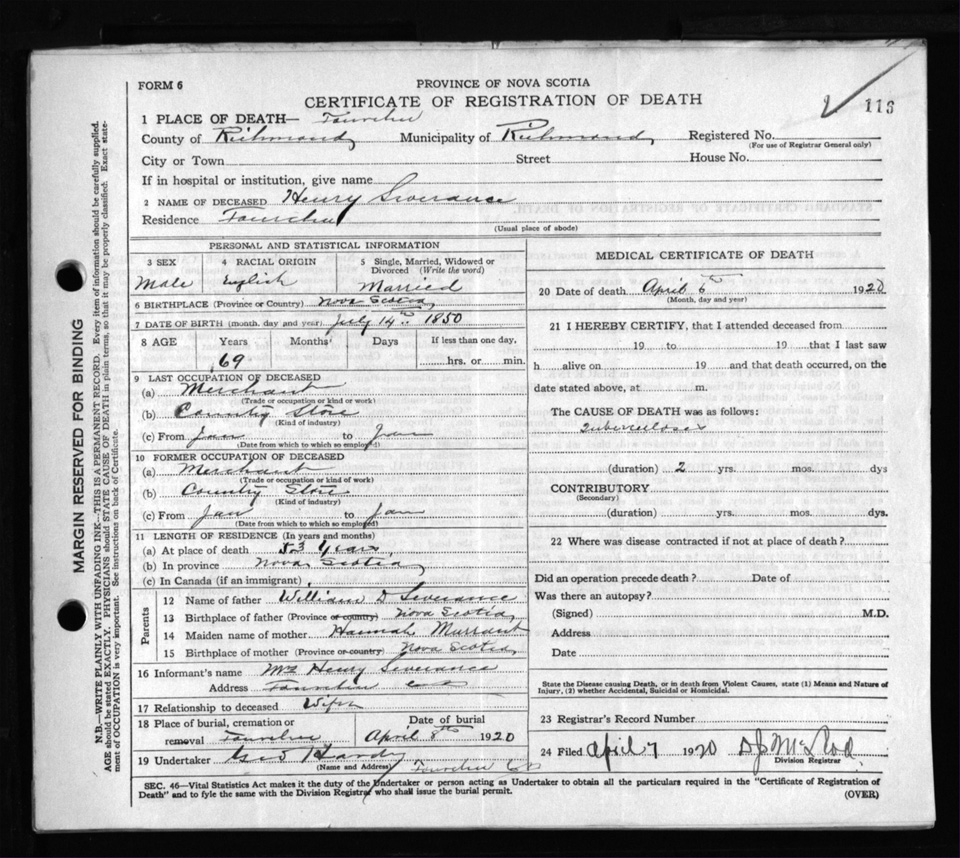 FORM 6
PROVINCE OF NOVA SCOTIA
CERTIFICATE OF REGISTRATION OF DEATH
113
1 PLACE OF DEATH— Fourchu
County of Richmond Municipality of Richmond Registered No.
(For use of Registrar General only)
City or Town Street House No.
If in hospital or institution, give name
2 NAME OF DECEASED Henry Severance
Residence Fourchu
(Usual place of abode)
PERSONAL AND STATISTICAL INFORMATION
3 SEX 4 RACIAL ORIGIN 5 Single, Married, Widowed or
Divorced (Write the word)
Male English Married
6 BIRTHPLACE (Province or Country) Nova Scotia
7 DATE OF BIRTH (month, day and year) July 14th 1850
8 AGE Years Months Days If less than one day,
69 hrs. or min.
9 LAST OCCUPATION OF DECEASED
(a) Merchant
(Trade or occupation or kind or work)
(b) Country Store
(Kind of industry)
(c) From Jan to Jan
(Date from which to which so employed)
10 FORMER OCCUPATION OF DECEASED
(a) Merchant
(Trade or occupation or kind of work)
(b) Country Store
(Kind of industry)
(c) From Jan to Jan
(Date from which to which so employed)
11 LENGTH OF RESIDENCE (In years and months)
(a) At place of death 53 Years
(b) In province Nova Scotia
(c) In Canada (if an immigrant)
Parents
12 Name of father William D Severance
13 Birthplace of father (Province or country) Nova Scotia
14 Maiden name of mother Hannah Murrant
15 Birthplace of mother (Province or country) Nova Scotia
16 Informant's name Mrs Henry Severance
Address Fourchu
17 Relationship to deceased Wife
18 Place of burial, cremation or Date of burial
removal Fourchu April 8th 1920
19 Undertaker Geo Hardy
(Name and Address) Fourchu
MEDICAL CERTIFICATE OF DEATH
20 Date of death April 6th 1920
(Month, day and year)
21 I HEREBY CERTIFY, that I attended deceased from
19 to 19 that I last saw
h alive on 19 and that death occurred, on the
date stated above, at m.
The CAUSE OF DEATH was as follows:
Tuberculoses
(duration) 2 yrs. mos. dys
CONTRIBUTORY
(Secondary)
(duration) yrs. mos. dys.
22 Where was disease contracted if not at place of death?
Did an operation precede death? Date of
Was there an autopsy?
(Signed) M.D.
Address
Date
State the Disease causing Death, or in death from Violent Causes, state (1) Means and Nature of
Injury, (2) whether Accidental, Suicidal or Homicidal.
23 Registrar's Record Number
24 Filed April 7 1920 D J McLeod
Division Registrar
SEC. 46—Vital Statistics Act makes it the duty of the Undertaker or person acting as Undertaker to obtain all the particulars required in the "Certificate of Registration of
Death" and to fyle the same with the Division Registrar who shall issue the burial permit.
(OVER)
MARGIN RESERVED FOR BINDING
N.B.—WRITE PLAINLY WITH UNFADING INK—THIS IS A PERMANENT RECORD. Every item of information should be carefully supplied.
AGE should be stated EXACTLY. PHYSICIANS should STATE CAUSE OF DEATH in plain terms, so that it may be properly classified. Exact state-
ment of OCCUPATION is very important. See instructions on back of Certificate.